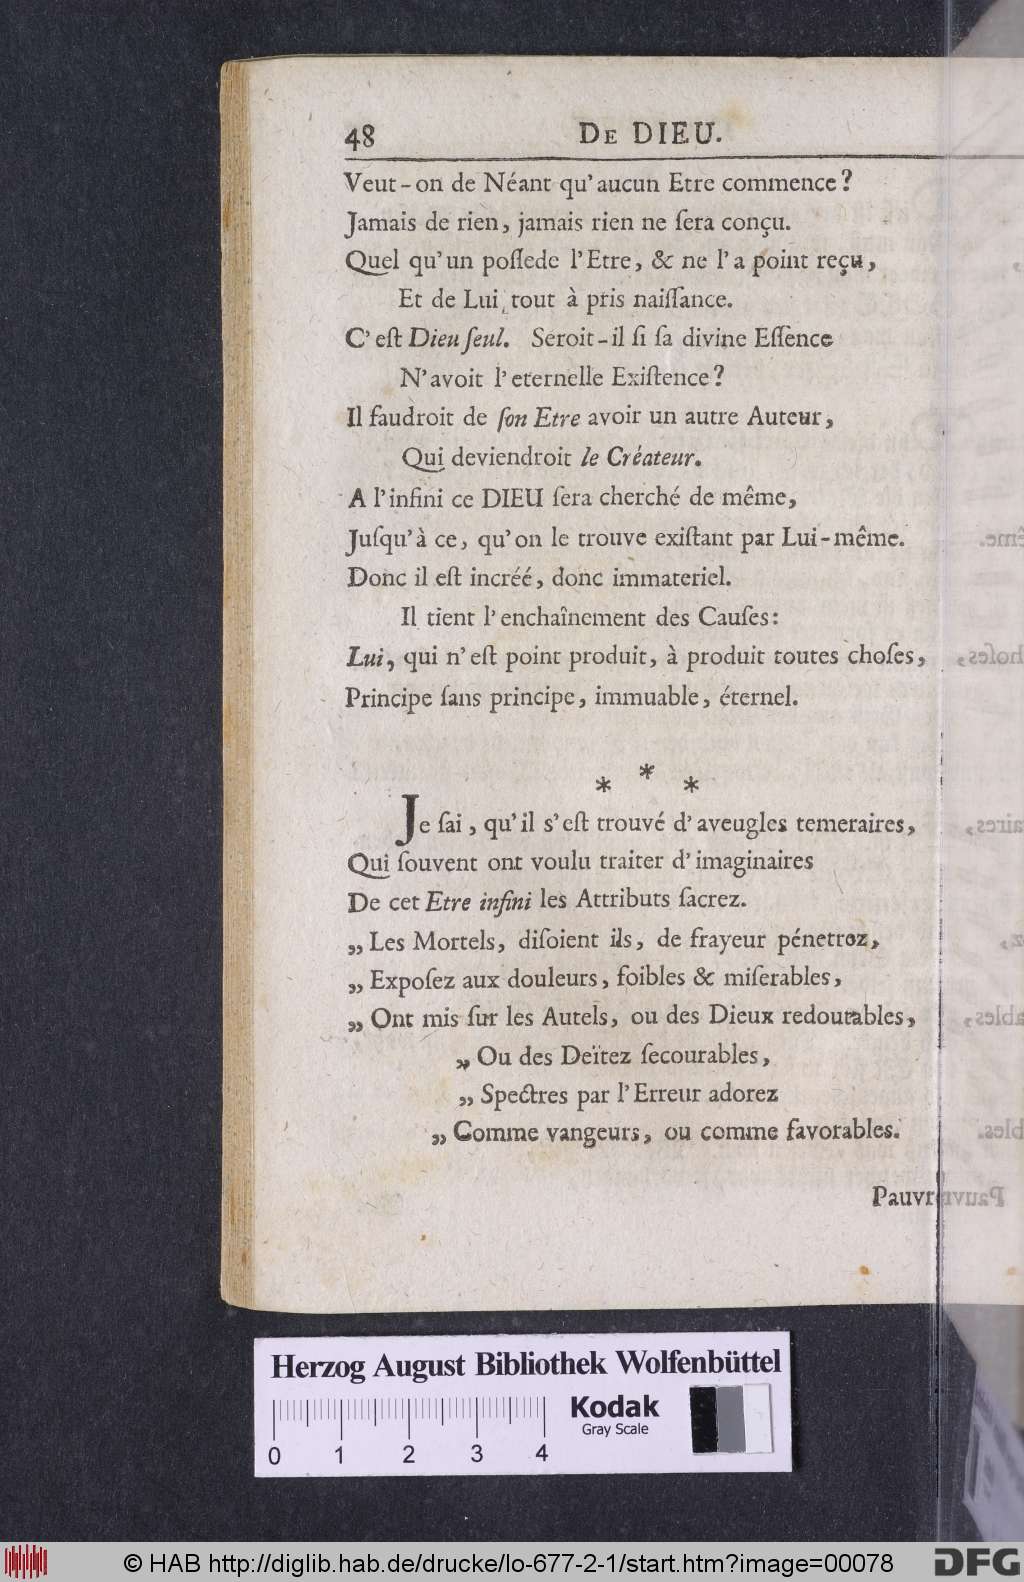 48 DE DIEU.
Veut-on de Néant qu'aucun Etre commence?
Jamais de rien, jamais rien ne ſera conçu.
Quel qu'un poſſede l'Etre, & ne l'a point reçu,
Et de Lui tout à pris naiſſance.
C'eſt Dieu ſeul. Seroit-il ſi ſa divine Eſſence
N'avoit l'eternelle Exiſtence?
Il faudroit de ſon Etre avoir un autre Auteur,
Qui deviendroit le Créateur.
A l'infini ce DIEU ſera cherché de même,
Juſqu'à ce, qu'on le trouve exiſtant par Lui-même.
Donc il eſt incréé, donc immateriel.
Il tient l'enchaînement des Cauſes:
Lui, qui n'eſt point produit, à produit toutes choſes,
Principe ſans principe, immuable, éternel.
* * *
Je ſai, qu'il s'eſt trouvé d'aveugles temeraires,
Qui ſouvent ont voulu traiter d'imaginaires
De cet Etre infini les Attributs ſacrez.
„ Les Mortels, diſoient ils, de frayeur pénetrez,
„ Expoſez aux douleurs, foibles & miſerables,
„ Ont mis ſur les Autels, ou des Dieux redoutables,
„ Ou des Deïtez ſecourables,
„ Spectres par l'Erreur adorez
„ Comme vangeurs, ou comme favorables.
Pauvr
Herzog August Bibliothek Wolfenbüttel
Kodak
Gray Scale
0 1 2 3 4
© HAB http://diglib.hab.de/drucke/lo-677-2-1/start.htm?image=00078
DFG